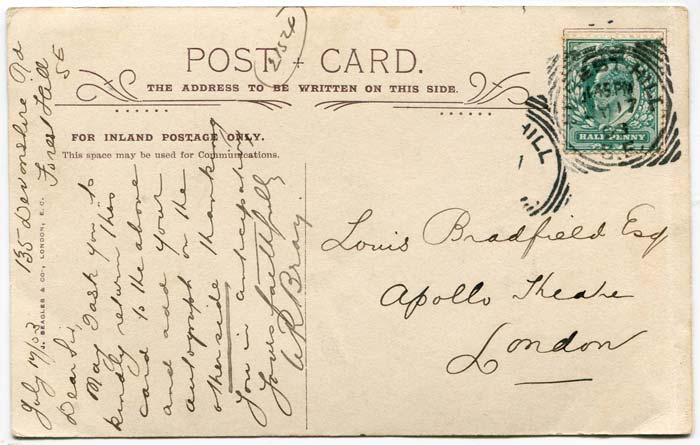 POST CARD.
THE ADDRESS TO BE WRITTEN ON THIS SIDE.
FOR INLAND POSTAGE ONLY.
This space may be used for Communications.
J. BEAGLES & CO., LONDON, E.C.
135 Devonshire Rd
Forest Hill
SE
July 17/03
Dear Sir,
May I ask you to
kindly return this
card to the above
and add your
autograph on the
other side thanking
you in anticipation
Yours faithfully
Bray.
Louis Bradfield Esq
Apollo Theatre
London
HALF PENNY
FOREST HILL
45 PM
17
03
S.E.
HILL